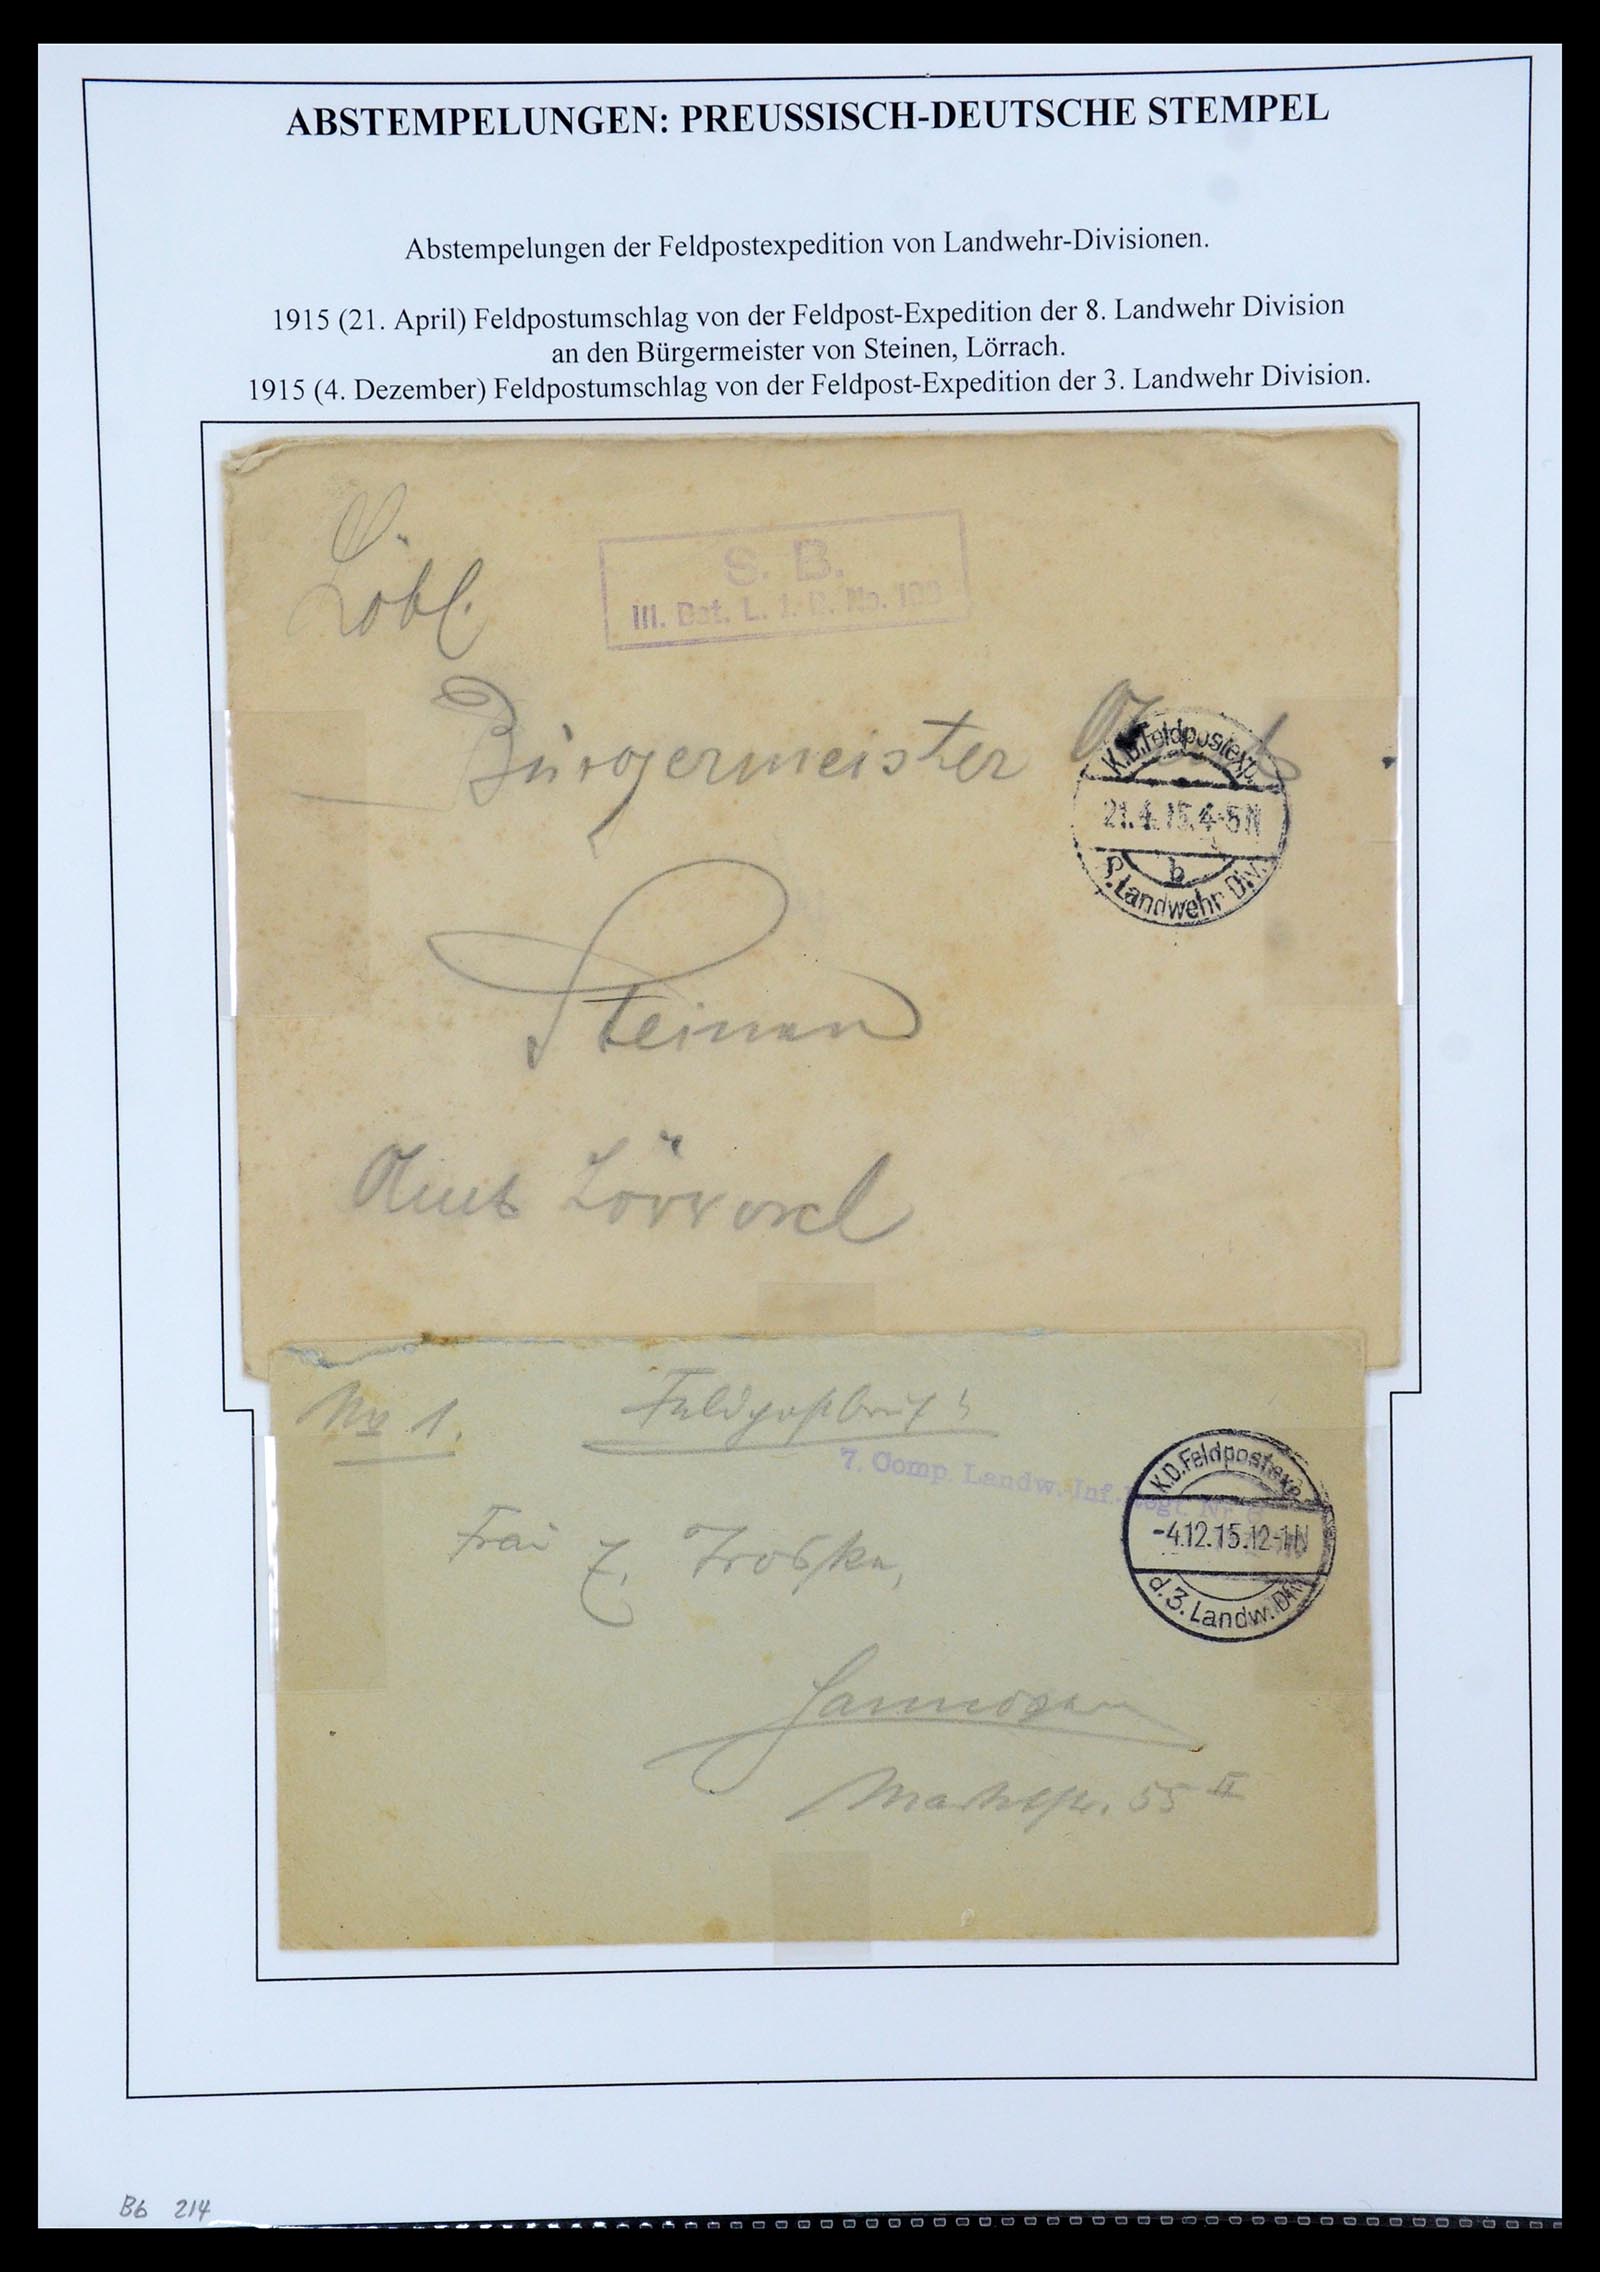 ABSTEMPELUNGEN: PREUSSISCH-DEUTSCHE STEMPEL
Abstempelungen der Feldpostexpedition von Landwehr-Divisionen.
1915 (21. April) Feldpostumschlag von der Feldpost-Expedition der 8. Landwehr Division
an den Bürgermeister von Steinen, Lörrach.
1915 (4. Dezember) Feldpostumschlag von der Feldpost-Expedition der 3. Landwehr Division.
Löbl.
S. B.
III. Bat. L. I. R. No. 109
Bürgermeister Amt
K.D.Feldpostexp.
21.4.15.4-5N
b
8.Landwehr Div.
Steinen
Amt Lörrach
No 1. Feldpostbrief!
7. Comp. Landw.-Inf.-Regt. Nr. 6
K.D.Feldpostexp.
-4.12.15.12-1N
d.3.Landw.Div.
Frau
55 II
B6 214